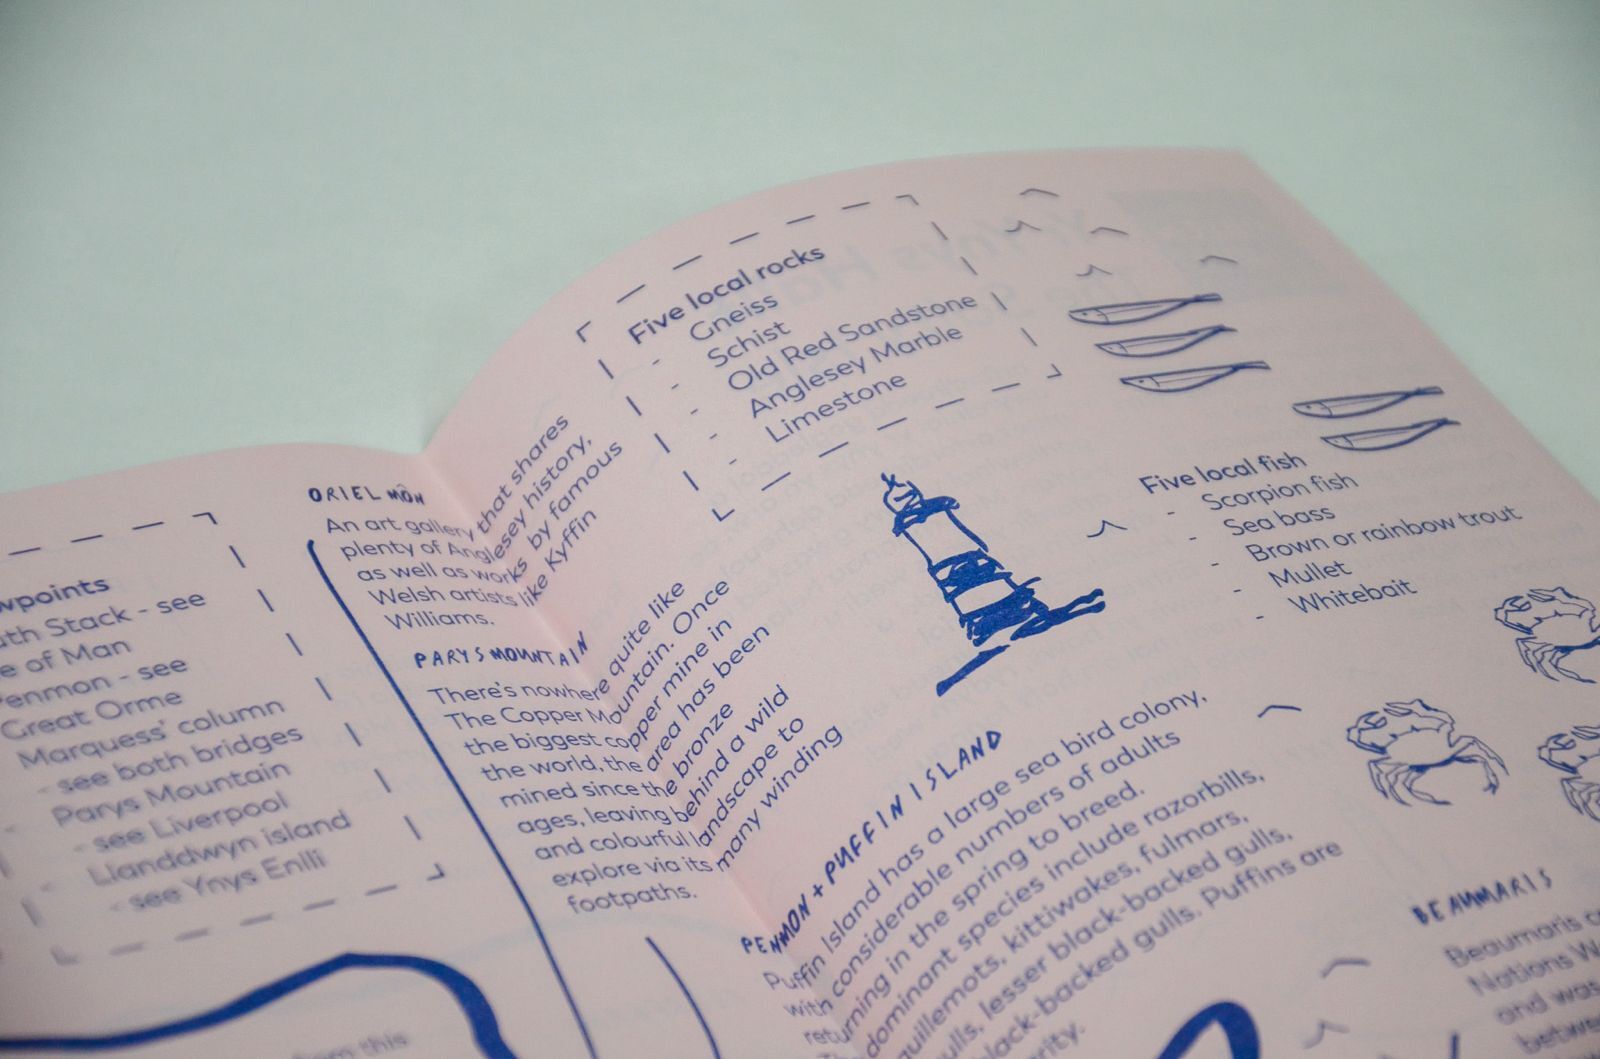 Five local rocks
- Gneiss
- Schist
- Old Red Sandstone
- Anglesey Marble
- Limestone
Five local fish
- Scorpion fish
- Sea bass
- Brown or rainbow trout
- Mullet
- Whitebait
ORIEL MÔN
An art gallery that shares
plenty of Anglesey history,
as well as works by famous
Welsh artists like Kyffin
Williams.
PARYS MOUNTAIN
There's nowhere quite like
The Copper Mountain. Once
the biggest copper mine in
the world, the area has been
mined since the bronze
ages, leaving behind a wild
and colourful landscape to
explore via its many winding
footpaths.
- see
of Man
- see
Great Orme
Marquess' column
- see both bridges
- Parys Mountain
- see Liverpool
- Llanddwyn island
- see Ynys Enlli
this
PENMON + PUFFIN ISLAND
Puffin Island has a large sea bird colony,
with considerable numbers of adults
returning in the spring to breed.
dominant species include razorbills,
guillemots, kittiwakes, fulmars,
lesser black-backed gulls,
black-backed gulls. Puffins are
BEAUMARIS
Beaumaris
Nations
and was